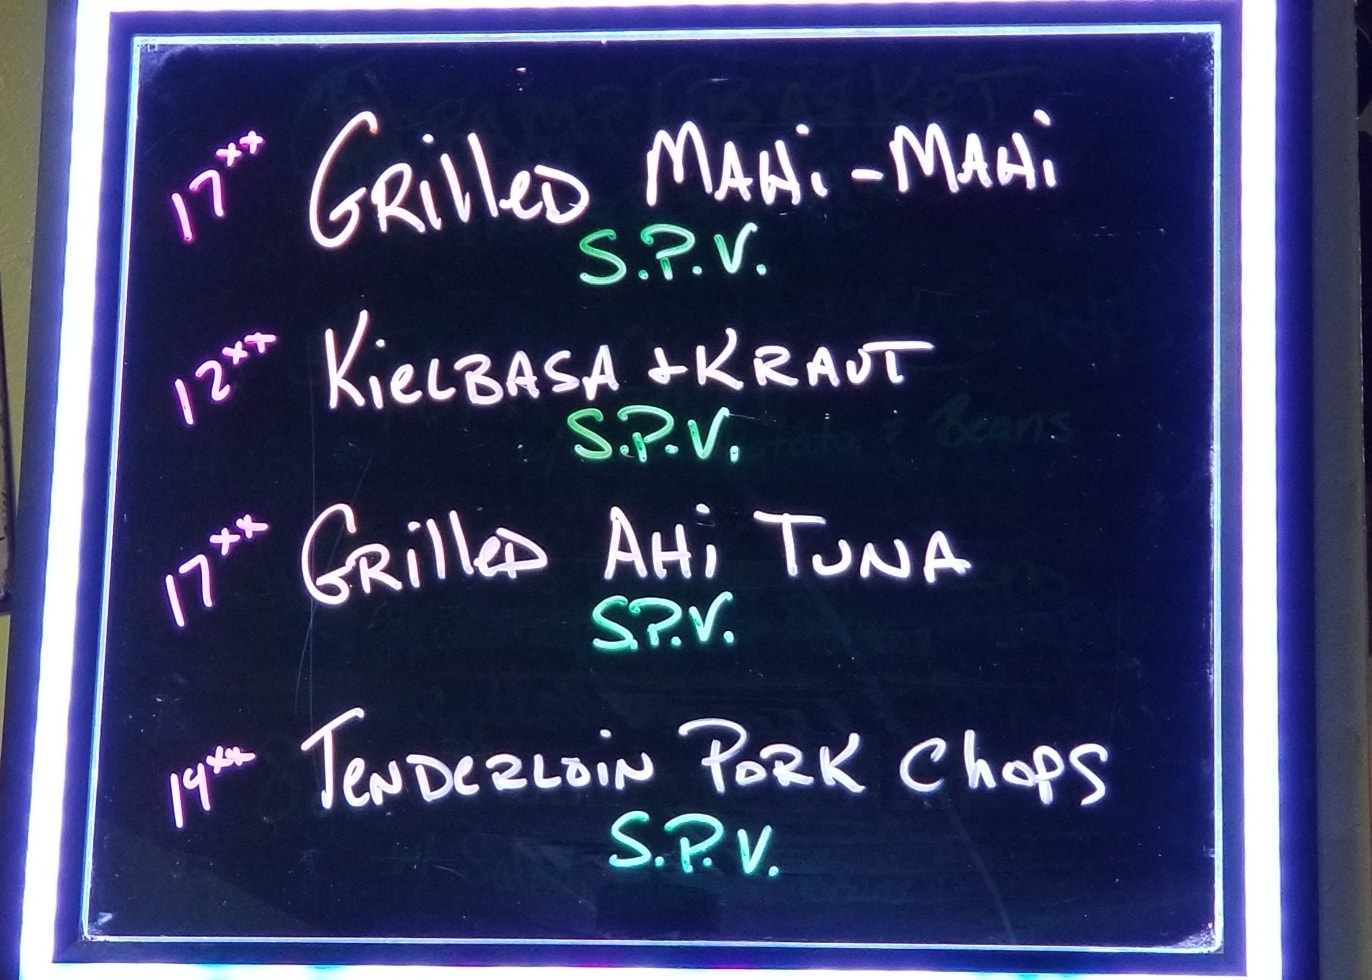 17xx GRillED MAHi-MAHi
S.P.V.
12xx KielBASA + KRAUT
S.P.V.
17xx GRilleD AHi TUNA
S.P.V.
19xx TENDERLOiN PORK Chops
S.P.V.